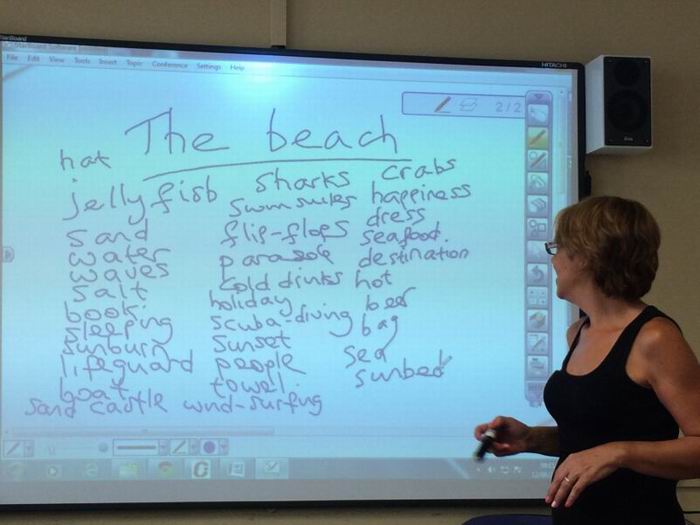 StarBoard Software
File Edit View Tools Insert Topic Conference Settings Help
HITACHI
2/2
The beach
hat
jellyfish
sand
water
waves
salt
book
sleeping
sunburn
lifeguard
boat
sand castle
sharks
swimsuits
flip-flops
parasole
cold drinks
holiday
scuba-diving
sunset
people
towel
wind-surfing
crabs
happiness
dress
seafood.
destination
hot
beer
bag
sea
sunbed